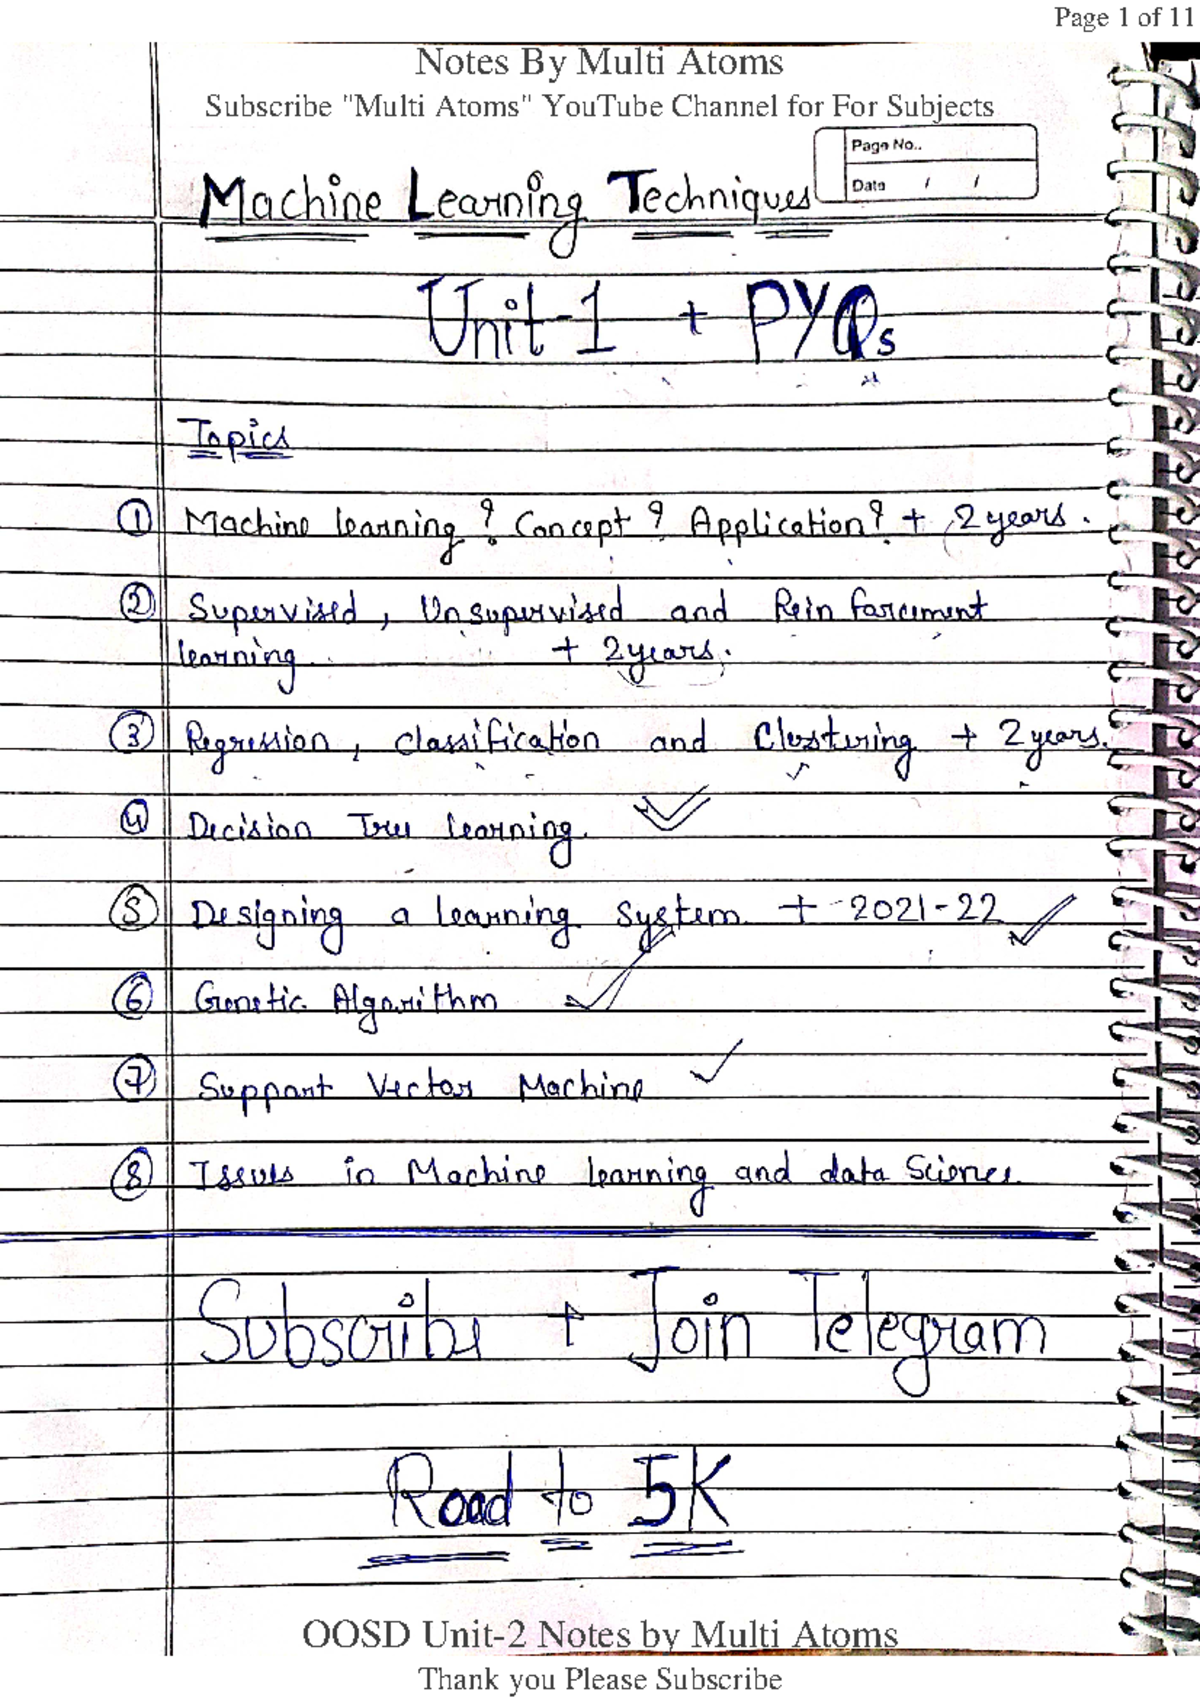 Page 1 of 11
Notes By Multi Atoms
Subscribe "Multi Atoms" YouTube Channel for For Subjects
Page No..
Date / /
Machine Learning Techniques
Unit-1 + PYQs
Topics
① Machine learning ? Concept ? Application? + 2 years.
② Supervised, Unsupervised and Reinforcement
learning + 2 years.
③ Regression, classification and Clustering + 2 years.
④ Decision Tree learning.
⑤ Designing a learning System + 2021-22
⑥ Genetic Algorithm
⑦ Support Vector Machine
⑧ Issues in Machine learning and data Science.
Subscribe + Join Telegram
Road to 5K
OOSD Unit-2 Notes by Multi Atoms
Thank you Please Subscribe